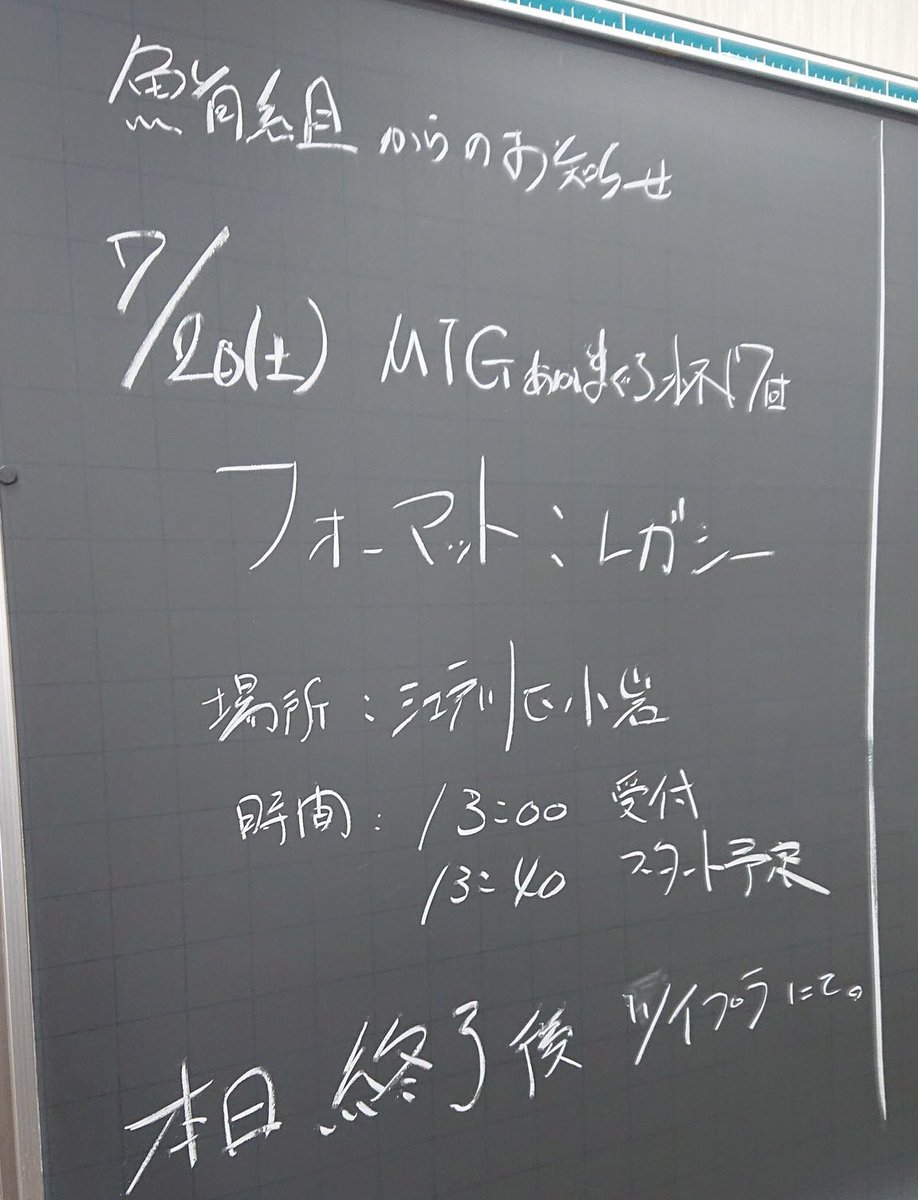 鮪組からのお知らせ
7/20(土) MTGあかまぐろ杯17回
フォーマット：レガシー
場所：江戸川区小岩
時間：13:00 受付
13:40 スタート予定
本日 終了後 ツイプラにて。